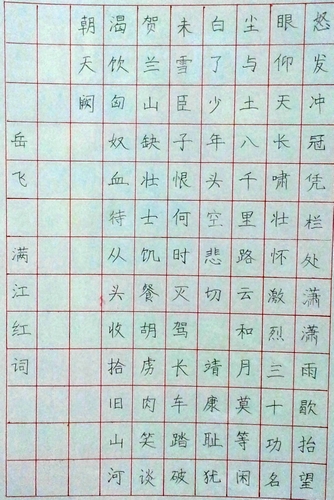 怒发冲冠凭栏处潇潇雨歇抬望
眼仰天长啸壮怀激烈三十功名
尘与土八千里路云和月莫等闲
白了少年头空悲切 靖康耻犹
未雪臣子恨何时灭驾长车踏破
贺兰山缺壮士饥餐胡虏肉笑谈
渴饮匈奴血待从头收拾旧山河
朝天阙
岳飞 满江红词